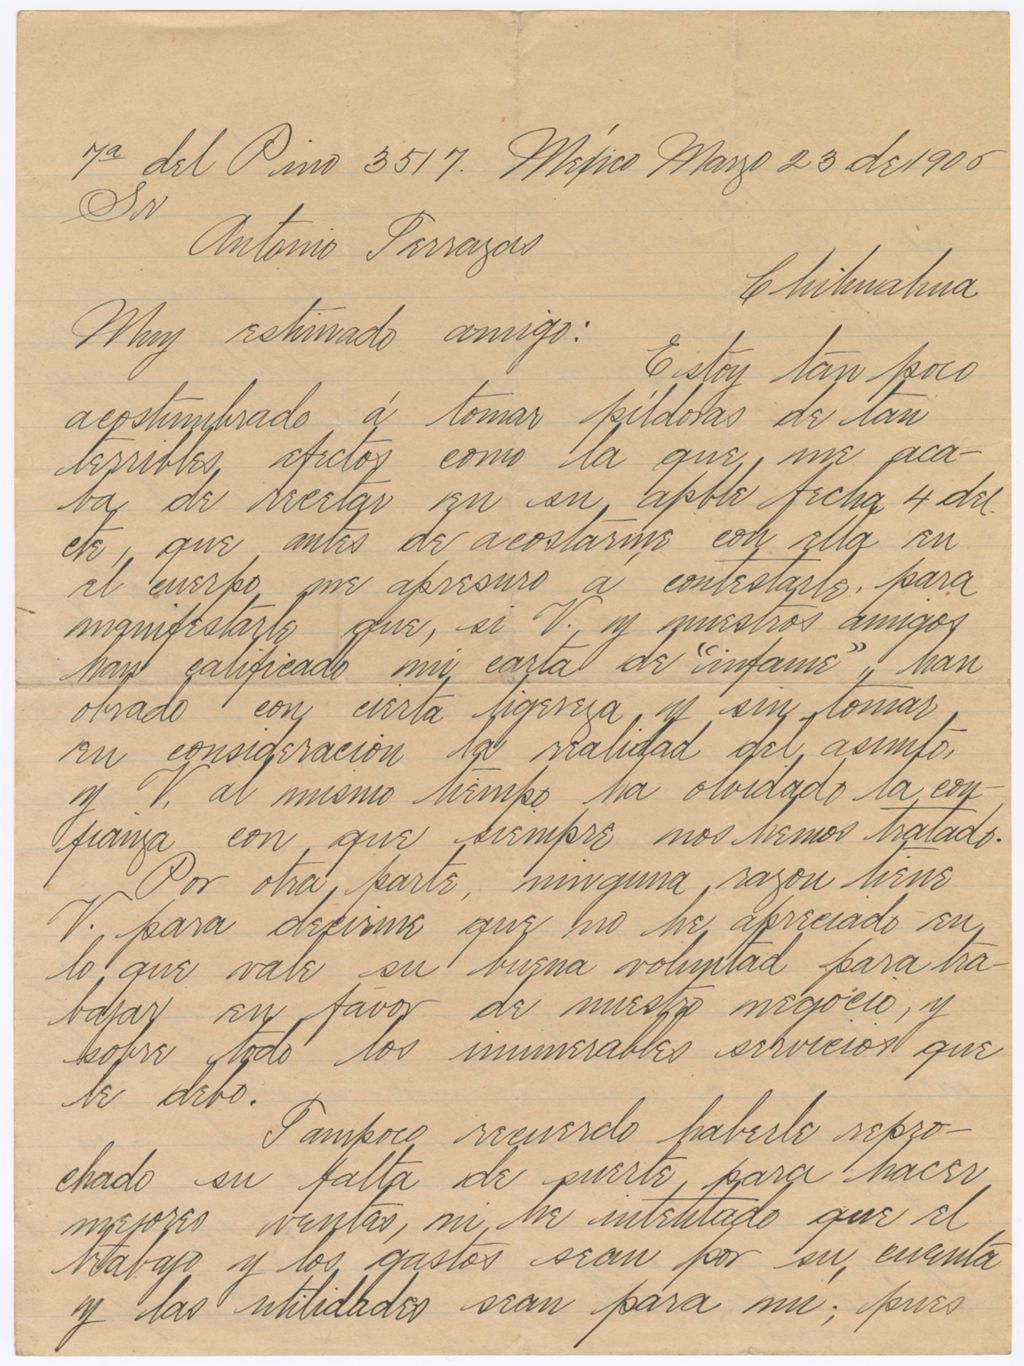 7ª del Pino 3517. México Marzo 23 de 1906
Sr
Antonio Terrazas
Chihuahua
Muy estimado amigo:
Estoy tan poco
acostumbrado á tomar píldoras de tan
terribles efectos como la que me aca-
ba de recetar en su apble fecha 4 del
cte, que antes de acostarme con ella en
el cuerpo me apresuro á contestarle, para
manifestarle que, si V. y nuestros amigos
han calificado mi carta de "infame", han
obrado con cierta ligereza y sin tomar
en consideracion la realidad del asunto,
y V. al mismo tiempo ha olvidado la con-
fianza con que siempre nos hemos tratado.
Por otra parte, ninguna razon tiene
V. para decirme que no he apreciado en
lo que vale su buena voluntad para tra-
bajar en favor de nuestro negocio, y
sobre todo los inumerables servicios que
le debo.
Tampoco recuerdo haberle repro-
chado su falta de suerte para hacer
mejores ventas, ni he intentado que el
trabajo y los gastos sean por su cuenta
y las utilidades sean para mi; pues